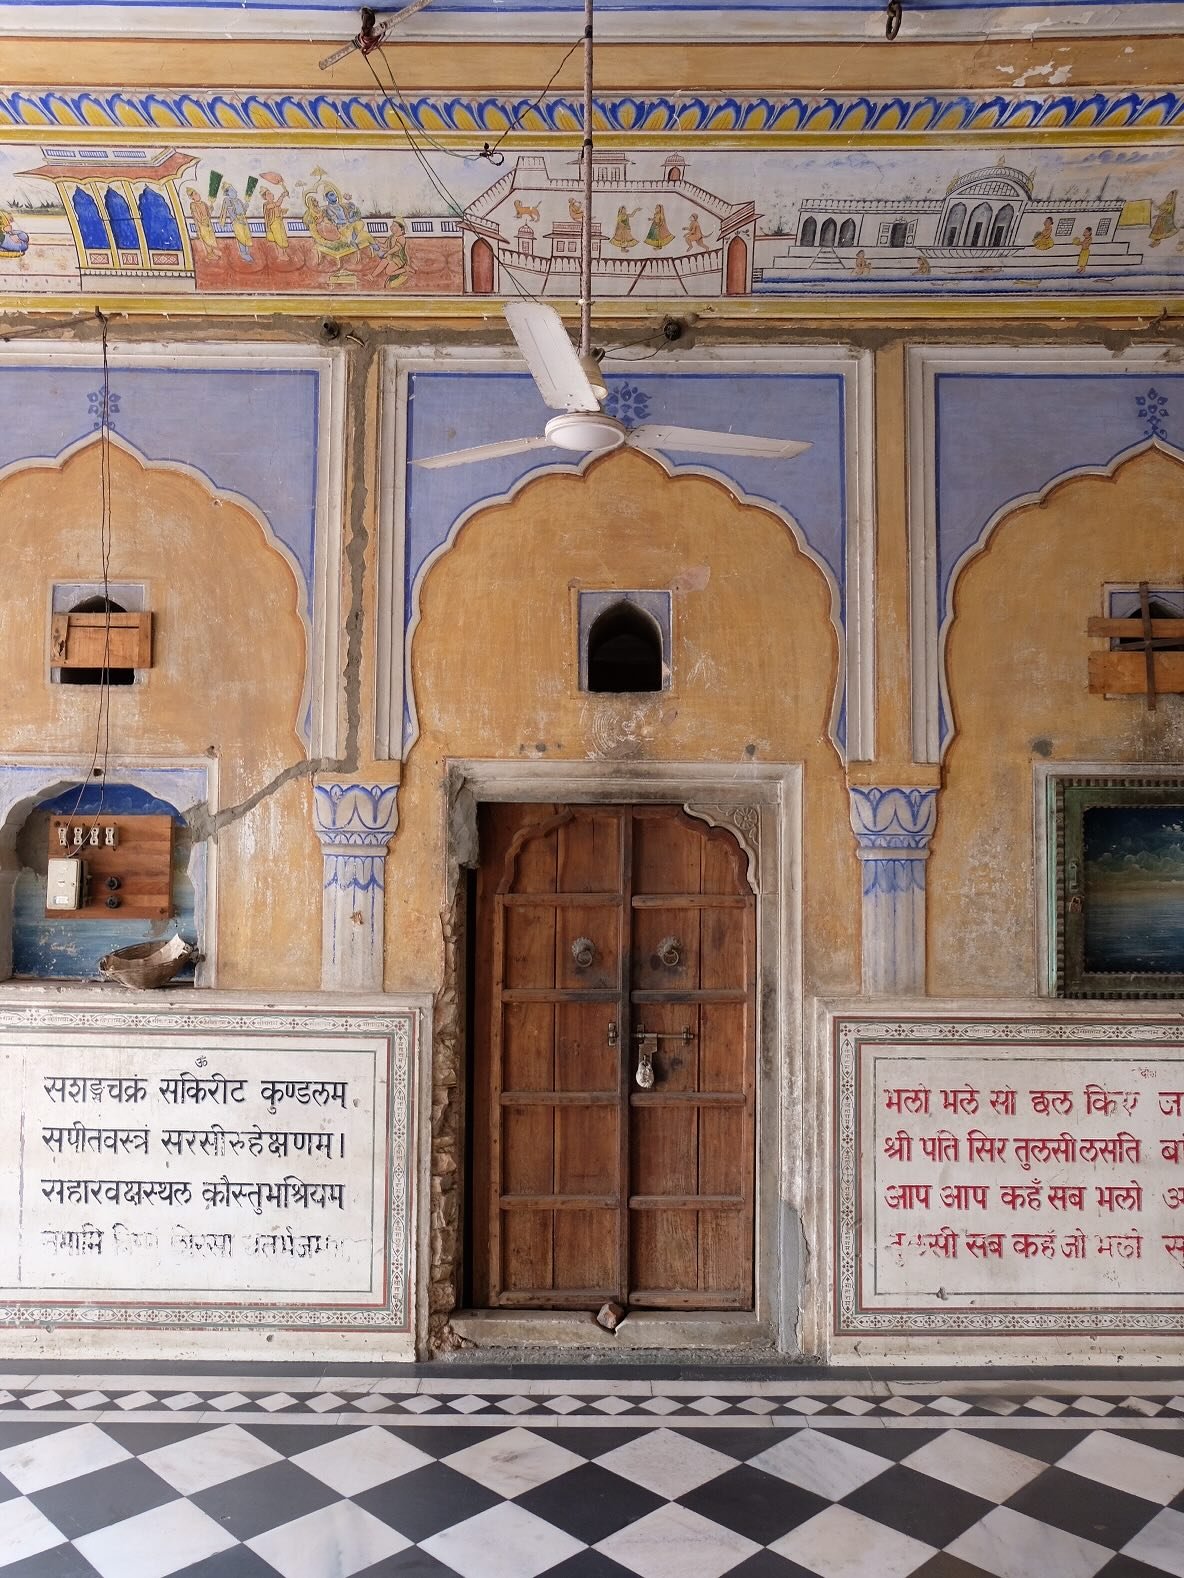 ॐ
सशङ्खचक्रं सकिरीट कुण्डलम्
सपीतवस्त्रं सरसीरुहेक्षणम्।
सहारवक्षस्थल कौस्तुभश्रियम
नमामि
दोहा
भलो भले सो छल किए
श्री पति सिर तुलसी लसति
आप आप कहँ सब भलो
सब कहँ जो भलो